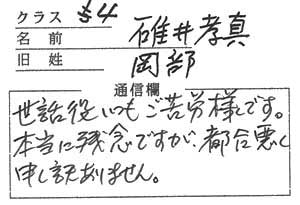 クラス 54
名前 碓井孝真
旧姓 岡部
通信欄
世話役いつもご苦労様です。
本当に残念ですが、都合悪く
申し訳ありません。